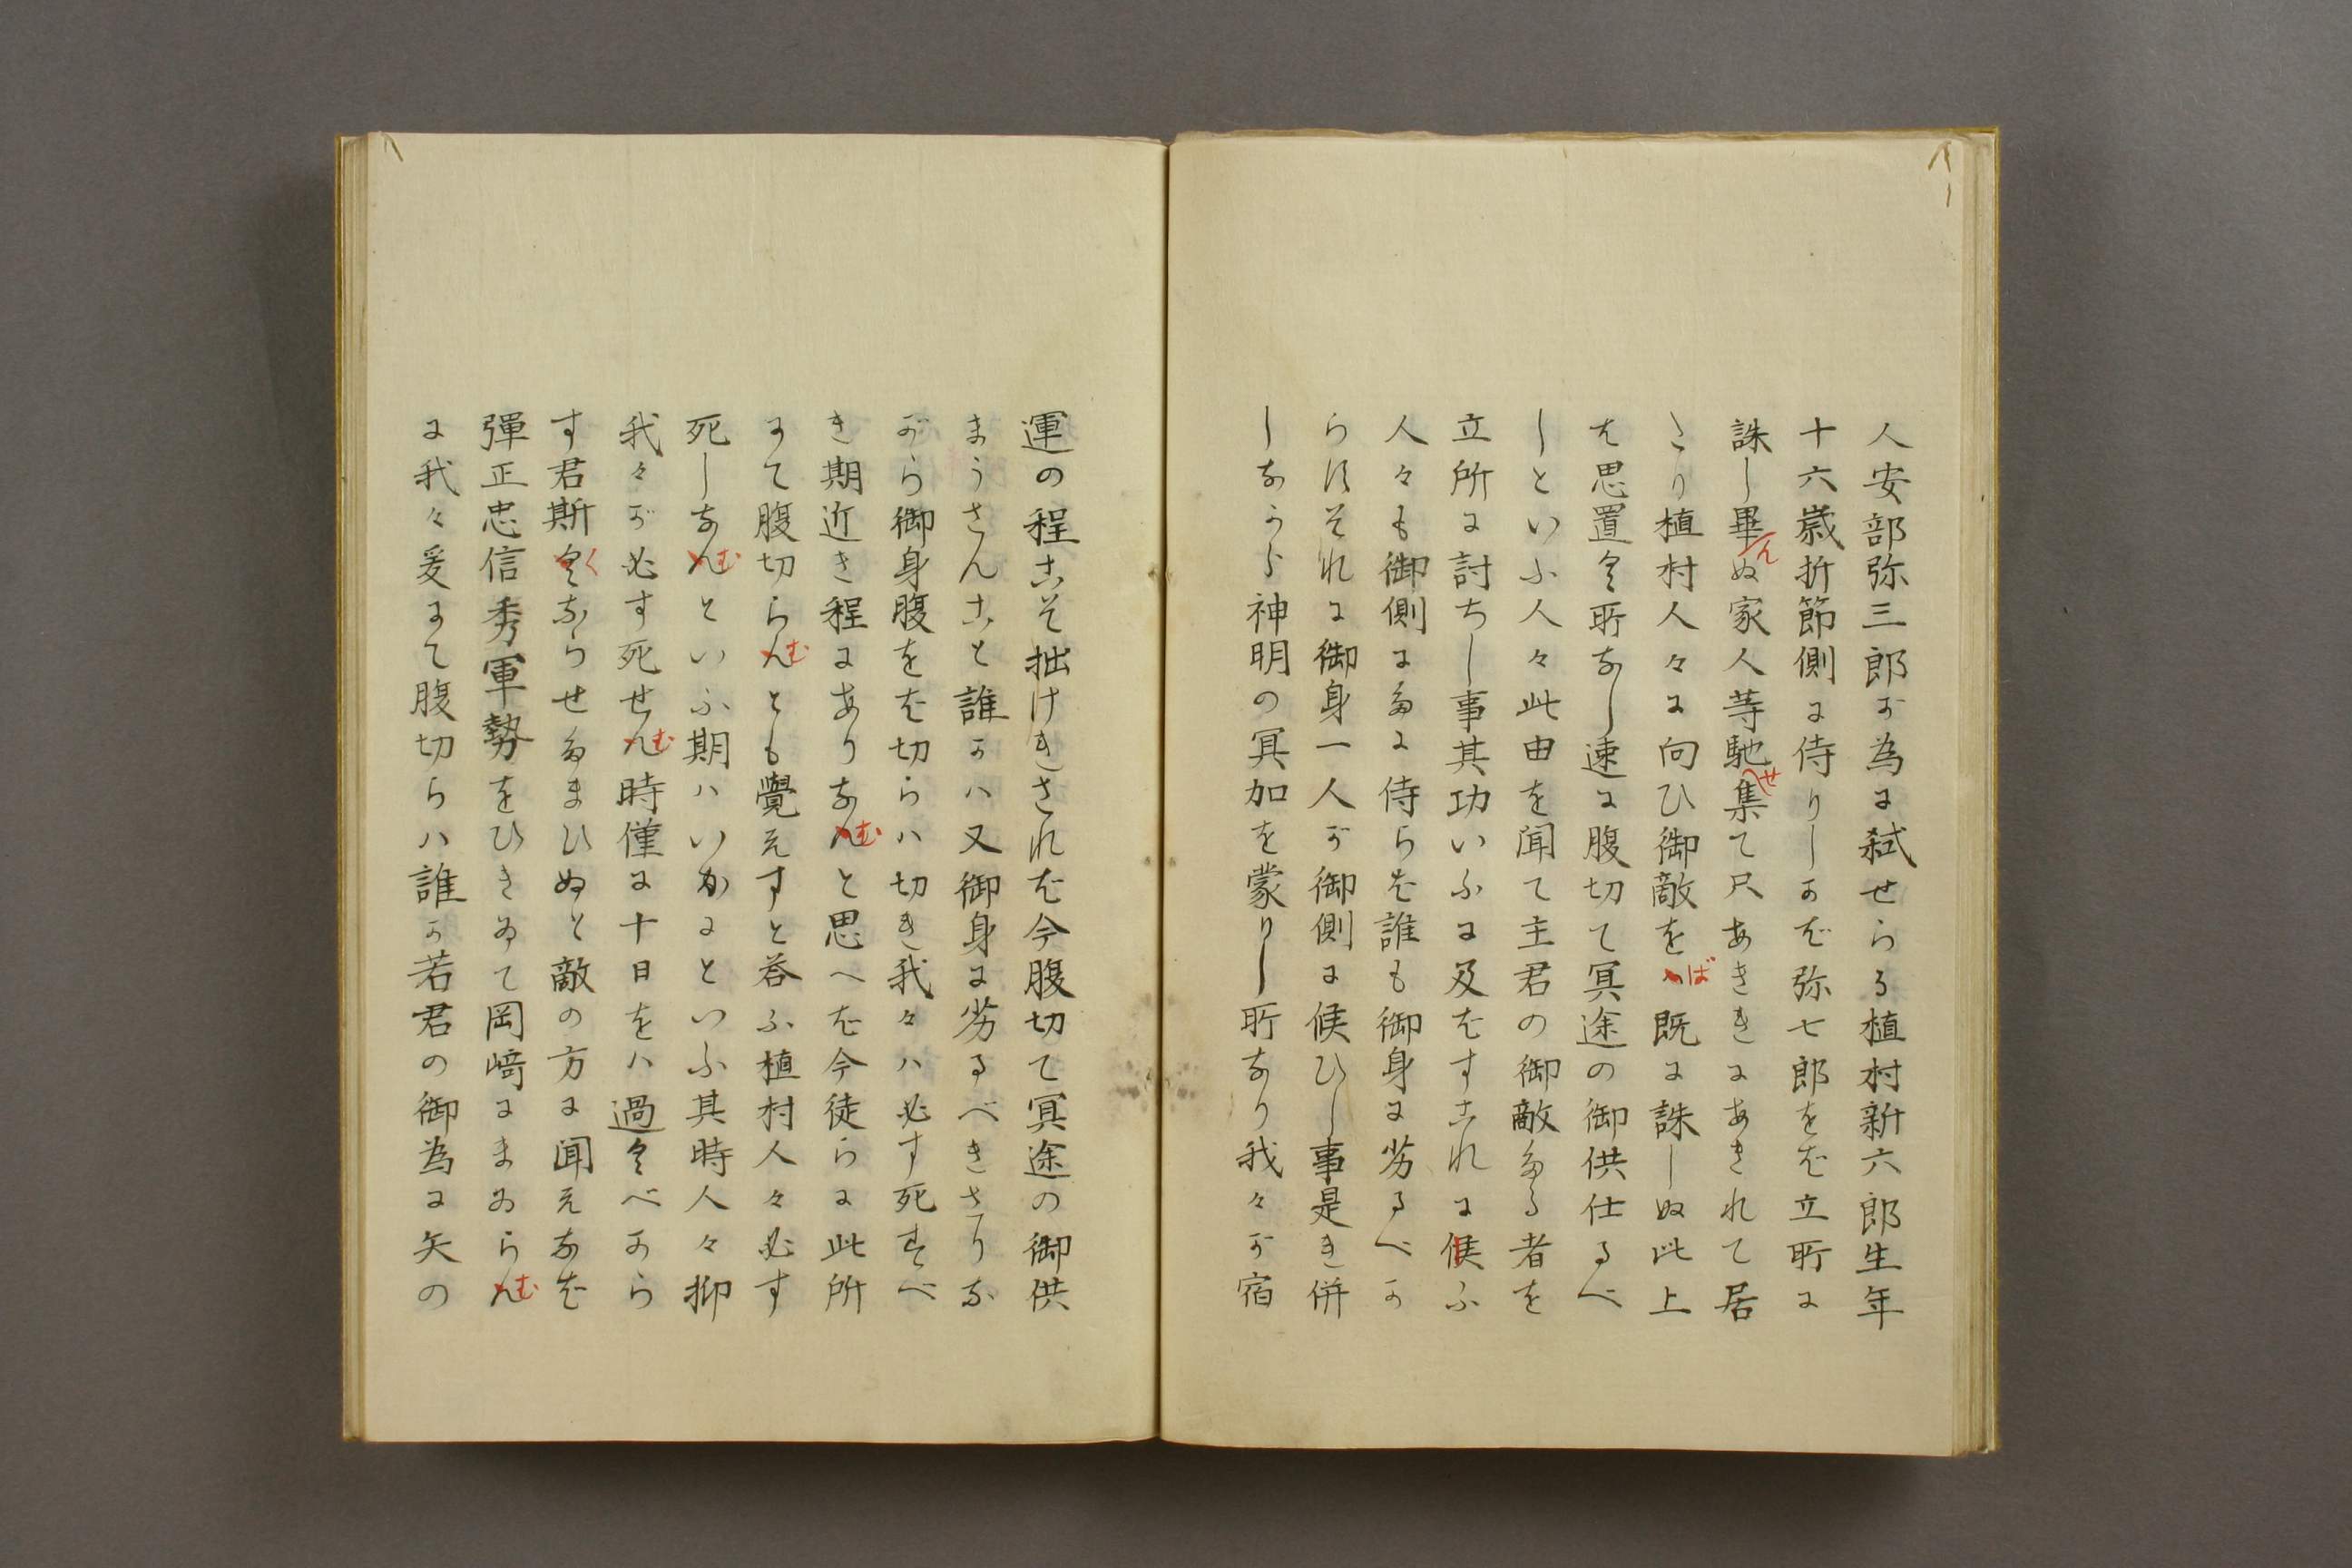 人安部弥三郎が為に弑せらる植村新六郎生年
十六歳折節側に侍りしかば弥七郎をば立所に
誅し畢んぬ家人等馳せ集て只あききにあきれて居
たり植村人々に向ひ御敵をば既に誅しぬ此上
は思置く所なし速に腹切て冥途の御供仕るべ
しといふ人々此由を聞て主君の御敵たる者を
立所に討ちし事其功いふに及はすこれに候ふ
人々も御側にたに侍らは誰も御身に劣るべか
らすそれに御身一人が御側に候ひし事是き併
しなから神明の冥加を蒙りし所なり我々が宿
運の程こそ拙けきされば今腹切て冥途の御供
まうさんこと誰かは又御身に劣るべきさりな
がら御身腹をば切らは切き我々は必す死すべ
き期近き程にありなむと思へば今徒らに此所
にて腹切らむとも覺えすと答ふ植村人々必す
死しなむといふ期はいかにといふ其時人々抑
我々が必す死せむ時僅に十日をは過くべから
す君斯くならせたまひぬと敵の方に聞えなば
彈正忠信秀軍勢をひきゐて岡﨑にまゐらむ
に我々爰にて腹切らは誰か若君の御為に矢の